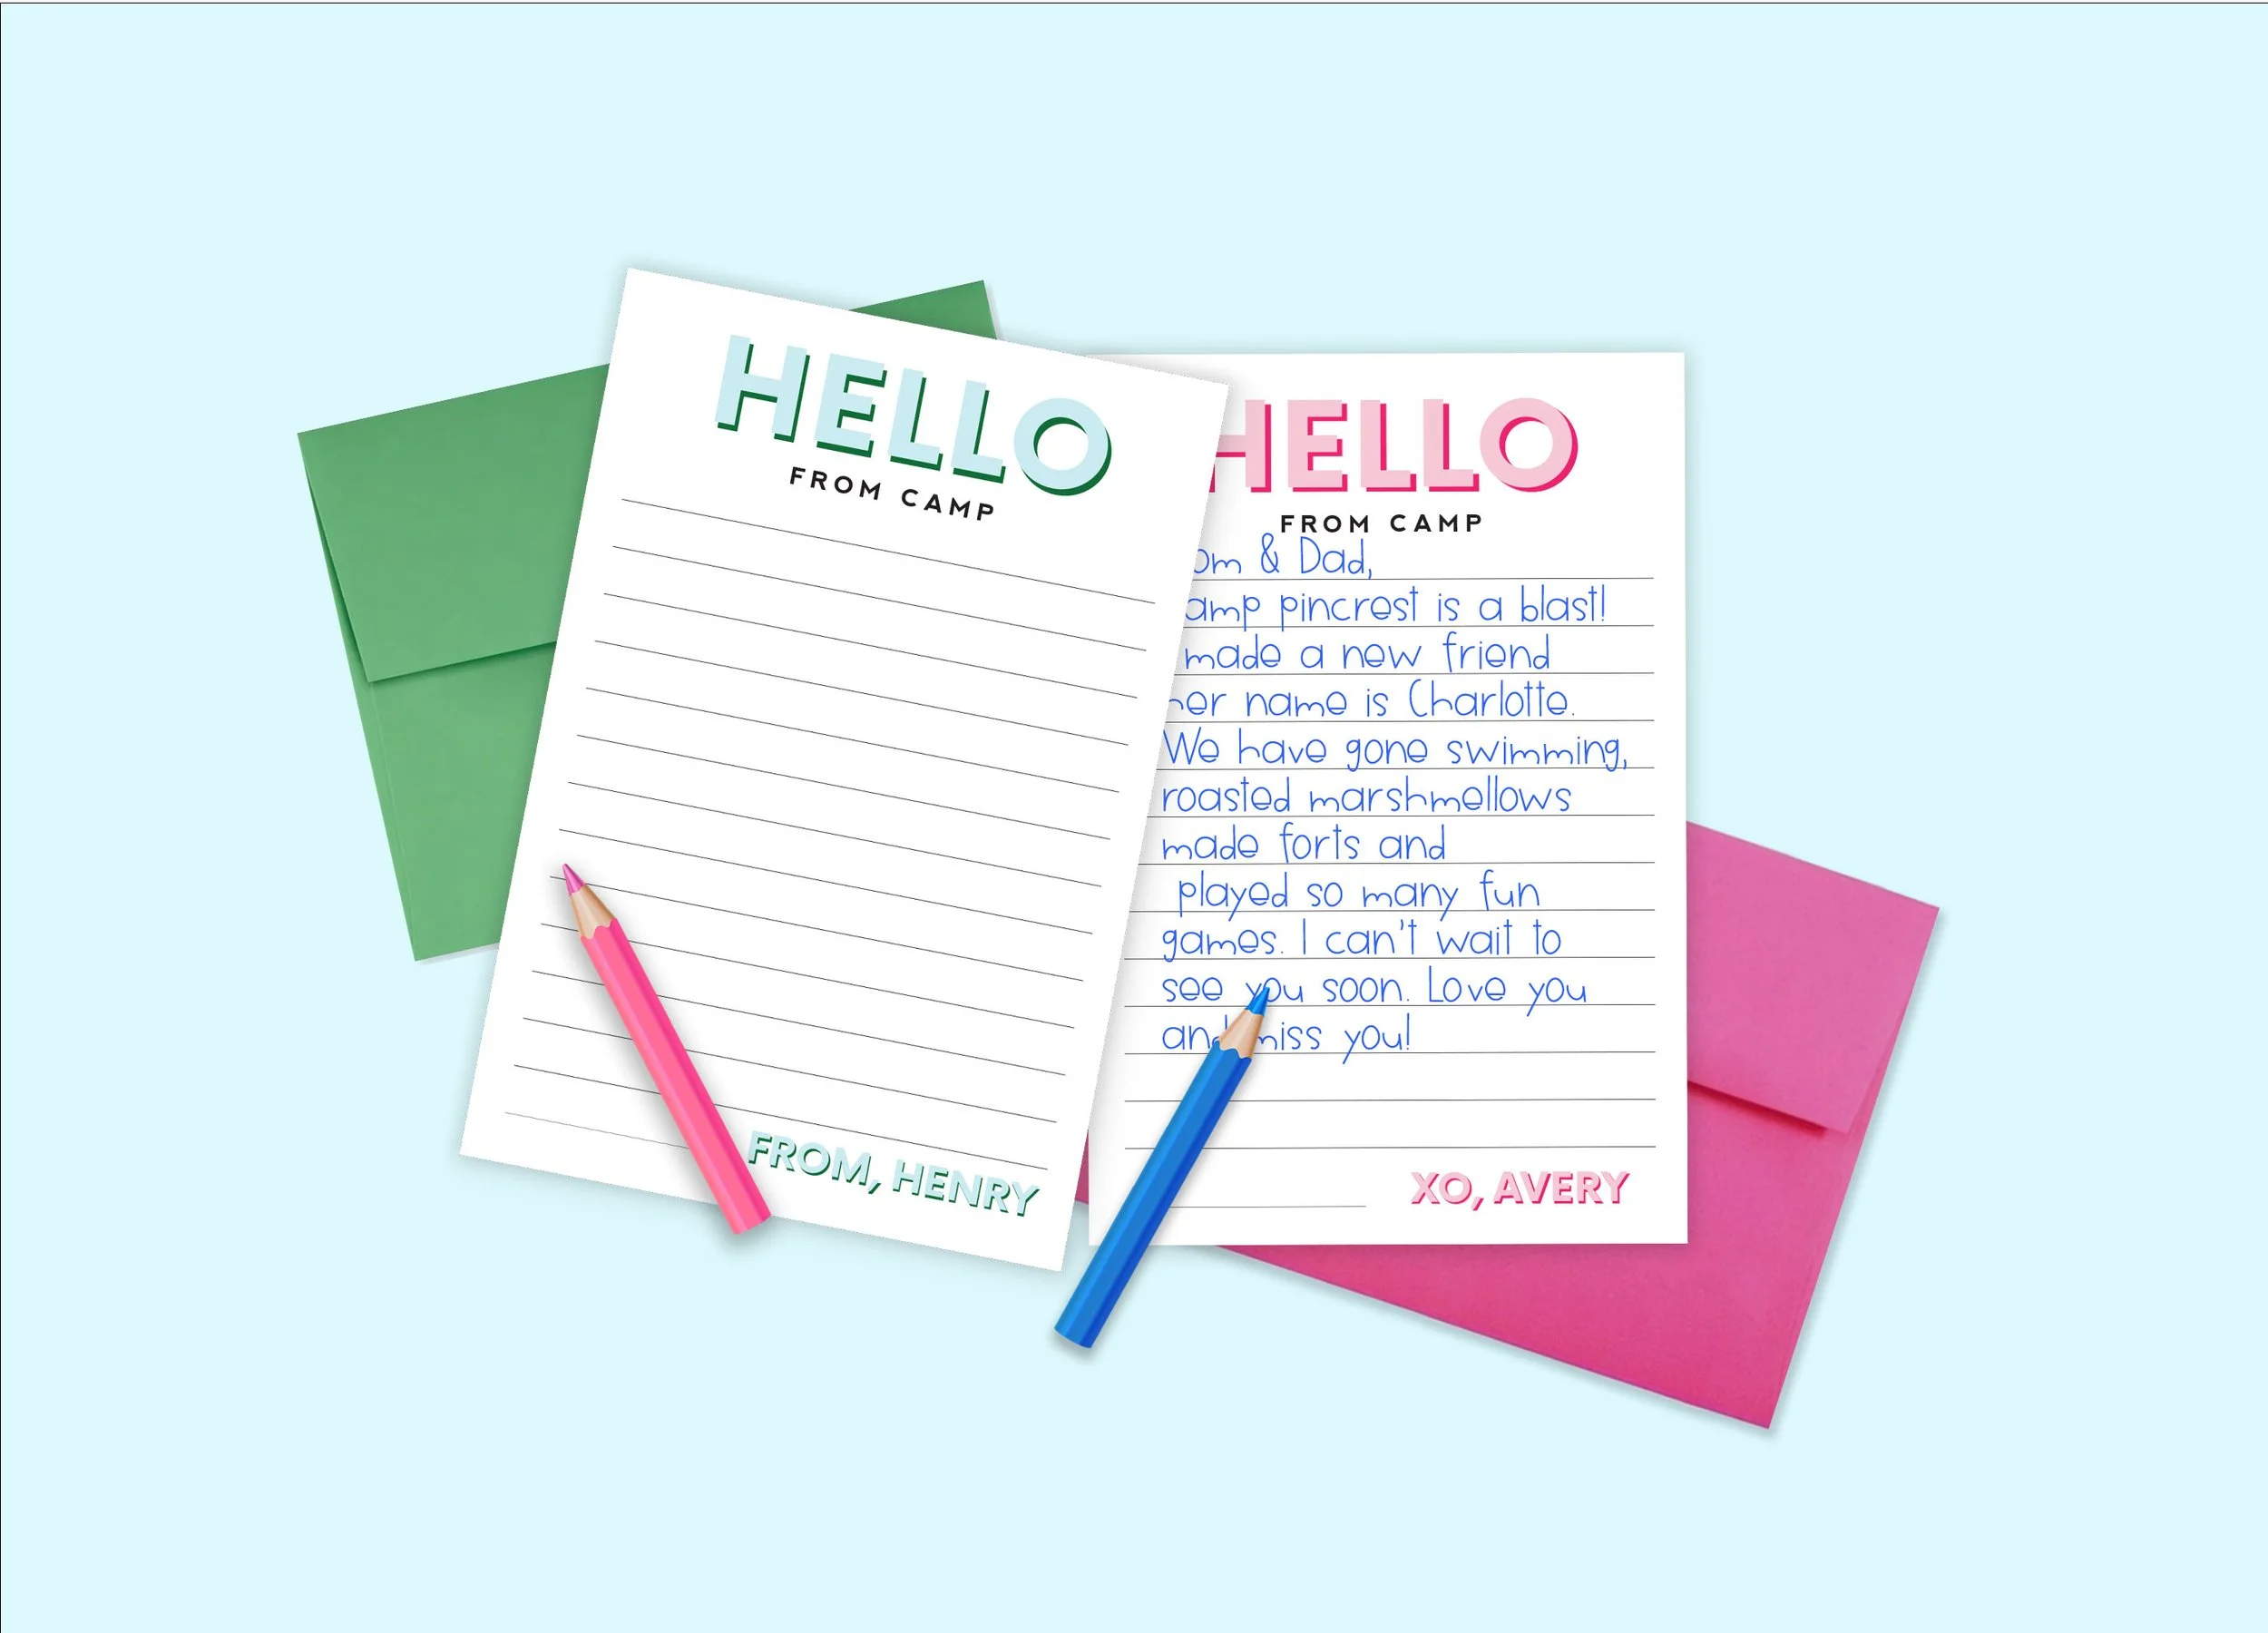 HELLO
FROM CAMP
FROM, HENRY
HELLO
FROM CAMP
& Dad,
pincrest is a blast!
made a new friend
name is Charlotte.
We have gone swimming,
roasted marshmellows
made forts and
played so many fun
games. I can't wait to
see you soon. Love you
and miss you!
XO, AVERY